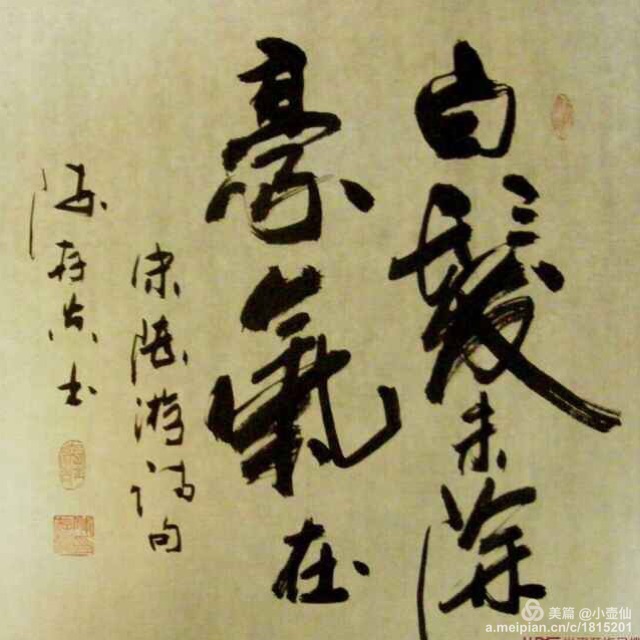 白髮未除
豪氣在
宋陸游詩句
书
美篇 @小壶仙
a.meipian.cn/c/1815201